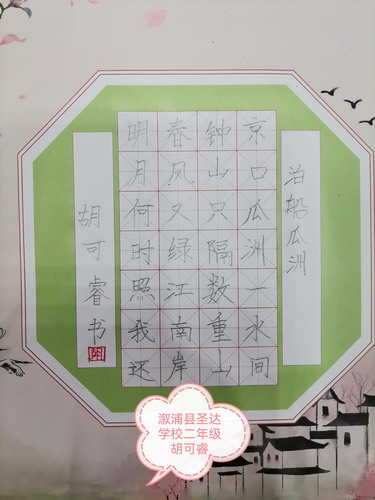 泊船瓜洲
京口瓜洲一水间
钟山只隔数重山
春风又绿江南岸
明月何时照我还
胡可睿书
溆浦县圣达
学校二年级
胡可睿